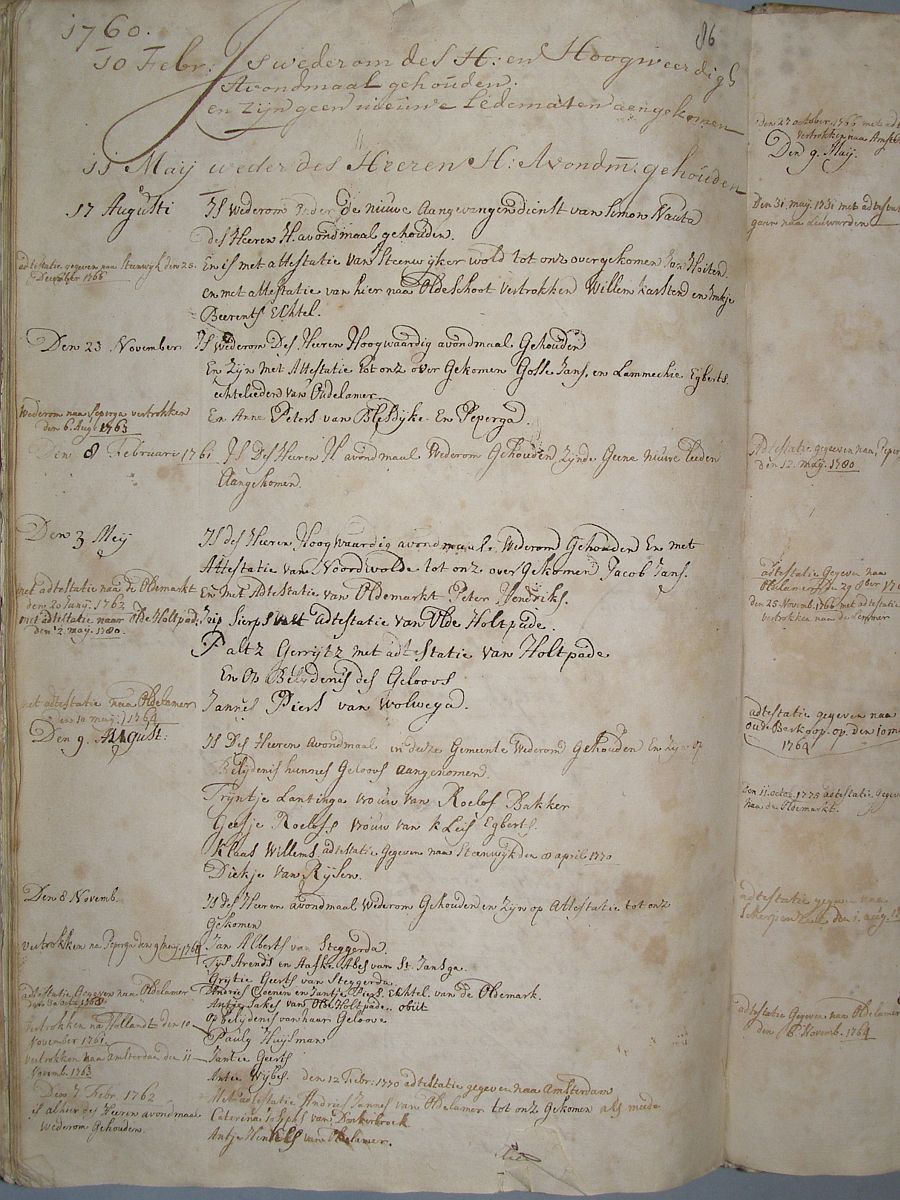 1760.
86
10 Febr: Is wederom des H: en Hoogweerdigh
Avondmaal gehouden.
en zijn geen nieuwe Ledematen aengekomen
11 Maij weder des Heeren H: Avondm: gehouden
17 Augusti Is wederom de nieuwe Aangevangen dienst van Simon Nauta
des Heeren H. avondmaal gehouden.
adtestatie gegeven naa Steenwijk den 25. En is met attestatie van Steenwijker wold tot onz overgekomen Jan
December 1766 en met attestatie van hier naa Oldeschoot vertrokken Willem Karsten en Imkje
Beerents Echtel.
Den 23 November Is wederom Des Heeren Hoogwaardig avondmaal Gehouden
En Zijn met Attestatie tot onz over Gekomen Gosse Jans, en Lammechie Egberts
echtelieden van Oudelamer
wederom naa Peperga vertrokken En Anne Peters van Blesdijke En Peperga.
den 6. Augt 1763
Den 8 Februari 1761 Is Des Heeren H avondmaal Wederom Gehouden Zijnde Geene nieuwe leeden
Aangekomen.
Den 3 Meij Is des Heeren Hoogwaardig avondmaal. Wederom Gehouden En met
Attestatie van Noordwolde tot onz over Gekomen Jacob Jans.
met adtestatie naa de Oldemarkt En met Adtestatie van Oldemarkt Peter Hendriks.
den 20 Janij. 1762
met adtestatie naar Olde Holtpad, Sierps met adtestatie van Olde Holtpade.
den 12. maij. 1780.
Paltz Gerrijtz met adtestatie van Holtpade
En Op Belijdenis des Geloovs
met adtestatie naa Oldelamer Jannes Piers van Wolvega.
den 10 maij: 1764
Den 9. August: Is Des Heeren Avondmaal in deeze Gemeente Wederom Gehouden En Zijn op
Belijdenis hunnes Geloovs aangenomen.
Trijntje Lantinga vrouw van Roelof Bakker
Geesje Roelofs vrouw van Kleis Egberts.
Klaas Willems. adtestatie Gegeven naa Steenwijk den 8 april 1770
Diekje van Rijsen.
Den 8 Novemb. Is des Heeren avondmaal Wederom Gehouden en Zijn op Attestatie tot onz
Gekomen
vertrokken na Peperga den 9 maij 1764 Jan Alberts van Steggerda.
Tijs Arends en Aafke Abes van St. Jansga.
Grijtie Geerts van Steggerda.
adtestatie Gegeven naa Oldelamer Andries Coenen en Jantje Piers. Echtel. van de Oldemark.
Antje Jakes van Olde Holtpade. obiit
op belijdenis van haar Geloove
vertrokken na Hollandt den 10 Pauly Huijsman
November 1761
vertrokken naa amsterdam den 11 Jantie Geerts
Novemb. 1763
Antie Wijbes. den 12 Febr: 1770 adtestatie gegeven naa Amsterdam
Den 7 Febr. 1762 Met adtestatie Andries Jannes van Oldelamer tot onz Gekomen als mede
is alhier des Heeren avondmaal Caterina Josephs van Donkerbroek
Wederom Gehouden. Antje Henkels van Oldelamer.
Den 27 october. 1766 met ad
vertrokken naa Amst
Den 9. Maij.
Den 31. maij. 1731 met adtest
gaan naa Leeuwarden
Adtestatie gegeven naa Peper
den 12. maij. 1780
adtestatie Gegeven naa
Oldelamer de 29 8ber
den 25 Novemb. 1766 met adtestatie
vertrokken naa de Lemmer
adtestatie gegeven naa
oude Berkoop. op. den 10
1764
Den 11. octob. 1775 adtestatie gegev
naa de Oldemarkt.
adtestatie gegeven naa
den 1. aug.
adtestatie Gegeven naa Oldelamer
den 8 Novemb. 1764